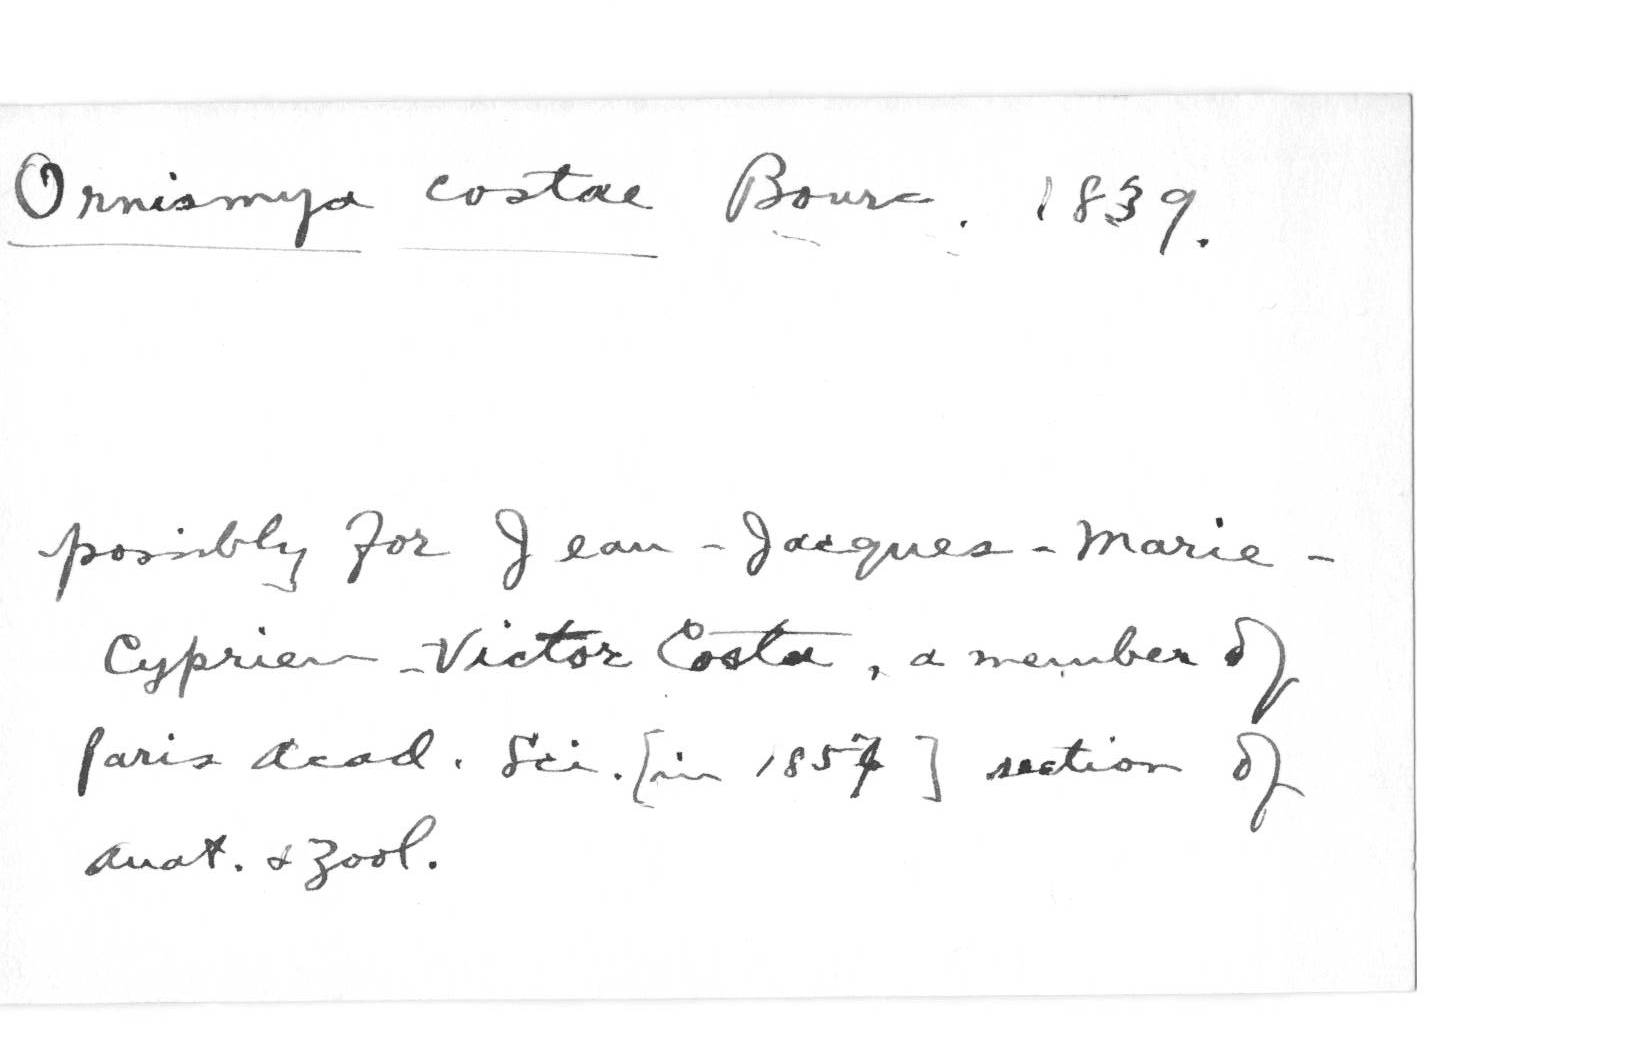 Ornismya costae Bourc. 1839.
possibly for Jean-Jacques-Marie-
Cyprien-Victor Costa, a member of
Paris Acad. Sci. [in 1857] section of
Anat. & Zool.